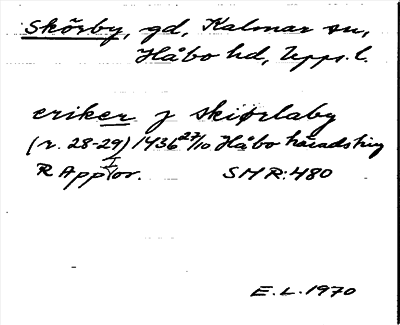 Skörby, gd, Kalmar sn,
Håbo hd, Upps. l.
eriker j skiørlaby
(r. 28-29) 1436 27/10 Håbo häradsting
R App I or.
SMR: 480
E.L. 1970